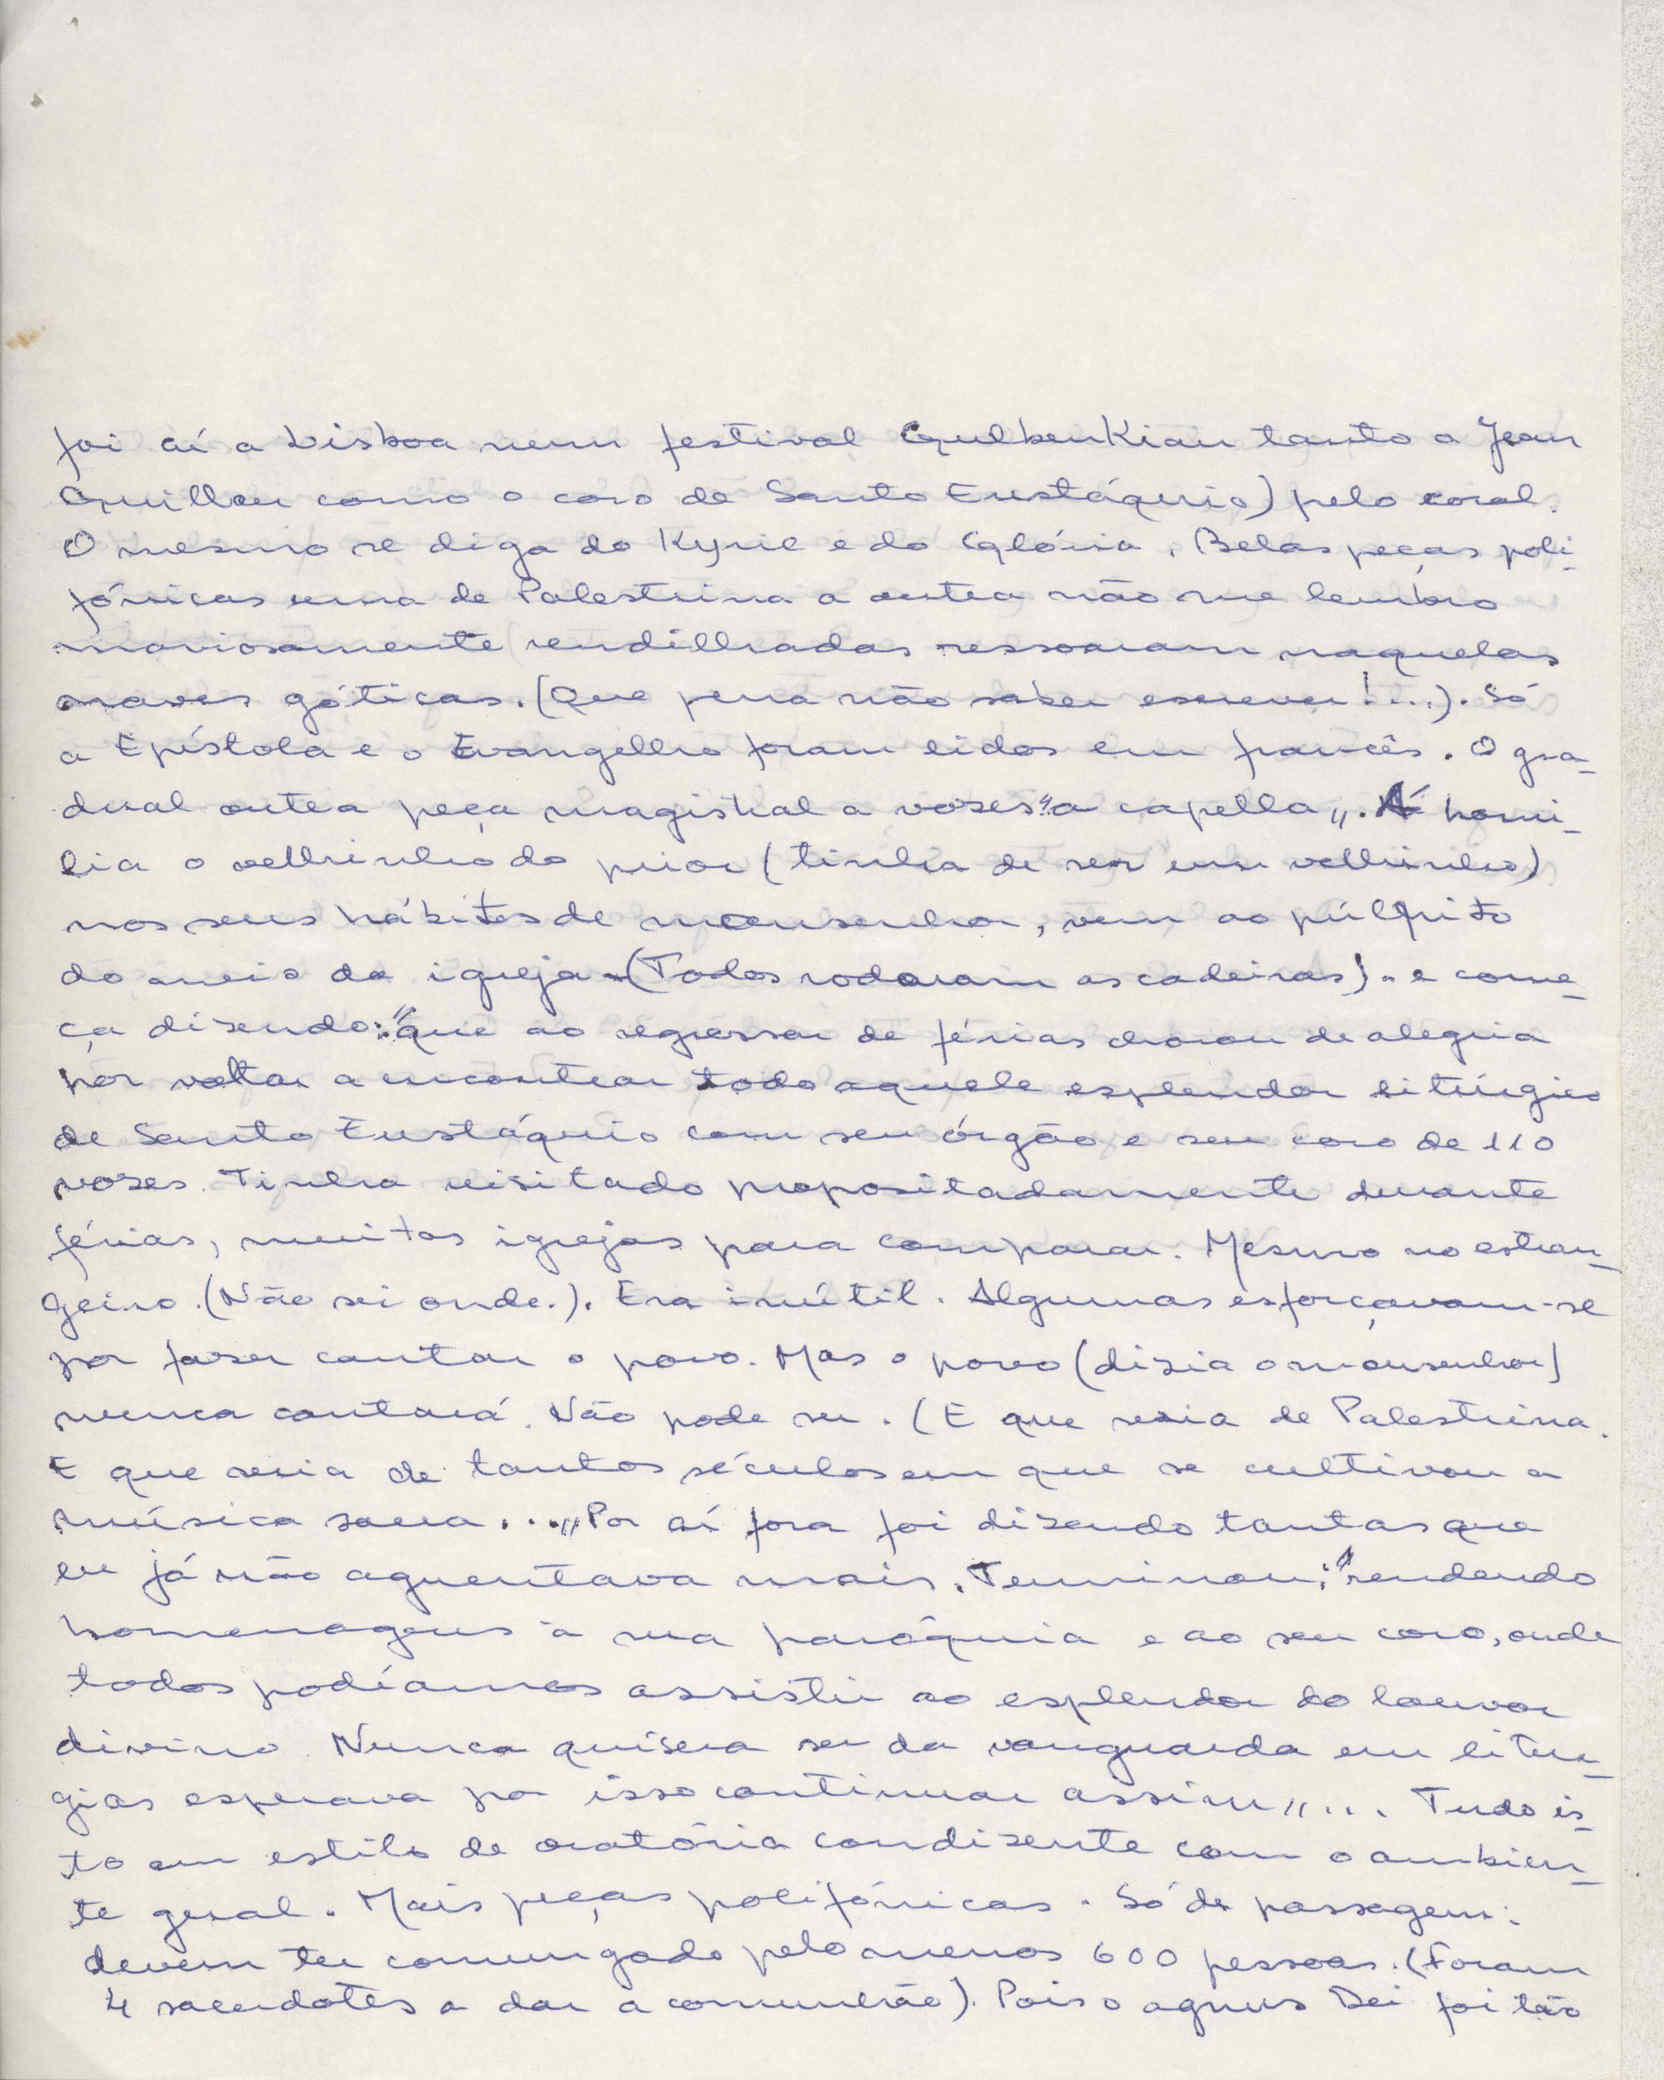 foi aí a Lisboa num festival Gulbenkian tanto a Jean
Guillou como o coro de Santo Eustáquio) pelo coral.
O mesmo se diga do Kyrie e do Glória. Belas peças poli-
fónicas uma de Palestrina a outra não me lembro
maviosamente rendilhadas ressoaram naquelas
naves góticas. (Que pena não saber escrever!...). Só
a Epístola e o Evangelho foram lidos em francês. O gra-
dual outra peça magistral a vozes "a capella". À homi-
lia o velhinho do prior (tinha de ser um velhinho)
nos seus hábitos de monsenhor, vem ao púlpito
do meio da igreja - (Todos rodaram as cadeiras) - e come-
ça dizendo: "que ao regressar de férias chorou de alegria
por voltar a encontrar todo aquele esplendor litúrgico
de Santo Eustáquio com seu órgão e seu coro de 110
vozes. Tinha visitado propositadamente durante
férias, muitas igrejas para comparar. Mesmo no estran-
geiro. (Não sei onde.). Era inútil. Algumas esforçavam-se
por fazer cantar o povo. Mas o povo (dizia o monsenhor)
nunca cantará. Não pode ser. (E que seria de Palestrina.
E que seria de tantos séculos em que se cultivou a
música sacra..." Por aí fora foi dizendo tantas que
eu já não aguentava mais. Terminou: "rendendo
homenagens à sua paróquia e ao seu coro, onde
todos podíamos assistir ao esplendor do louvor
divino. Nunca quisera ser da vanguarda em litur-
gias esperava por isso continuar assim"... Tudo is-
to em estilo de oratória condizente com o ambien-
te geral. Mais peças polifónicas. Só de passagem:
devem ter comungado pelo menos 600 pessoas. (Foram
4 sacerdotes a dar a comunhão). Pois o agnus Dei foi tão